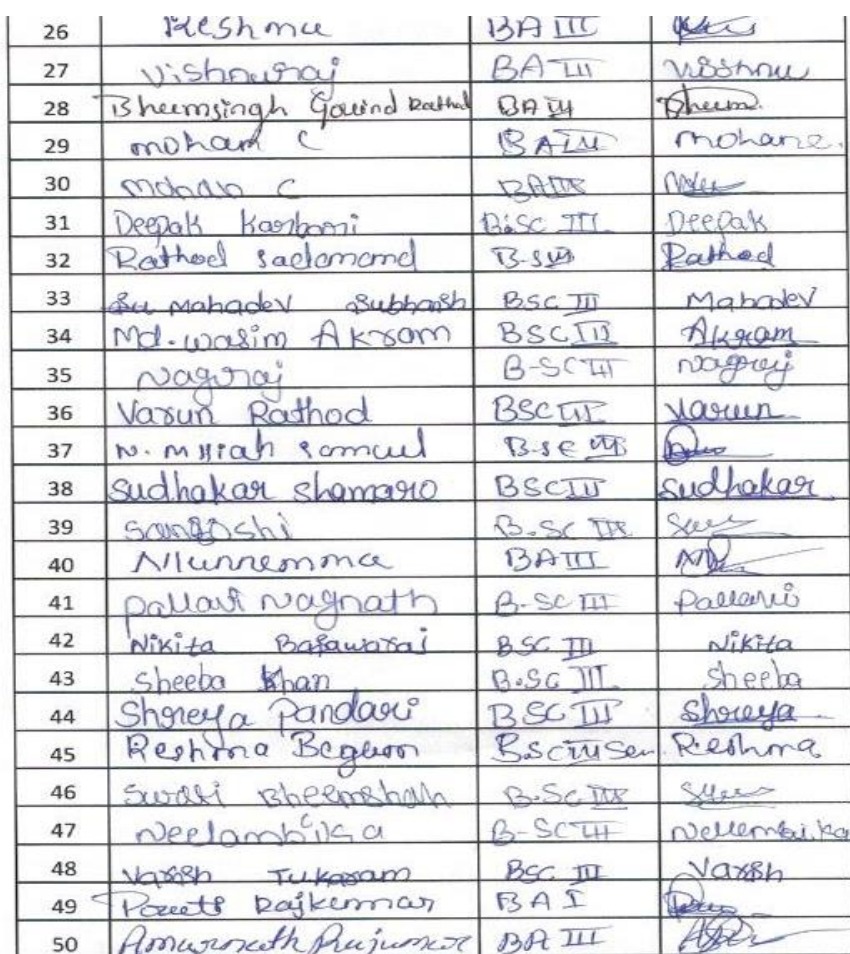 26 Reshma BA III
27 Vishnuraj BA III Vishnu
28 Bheemsingh Govind Rathod BA III Bheem.
29 moham C BA III mohan
30 mohan C BA III
31 Deepak B.Sc III Deepak
32 Rathod B.S III Rathod
33 Mahadev Subhash BSC III Mahadev
34 Md. wasim Akram BSC III Akram
35 Nagraj B-SC III Nagraj
36 Varun Rathod BSC III Varun
37 N. B.SC III
38 Sudhakar Shamaro BSC III Sudhakar
39 B.SC III
40 BA III
41 Pallavi Nagnath B-SC III Pallavi
42 Nikita Basawaraj BSC III Nikita
43 Sheeba Khan B.SC III Sheeba
44 Shreya Pandari BSC III Shreya
45 Reshma Begum B.SC III Sem Reshma
46 Bheemshah B-SC III
47 Neelambika B-SC III
48 Tukaram BSC III
49 Rajkumar BA I
50 Amarnath BA III